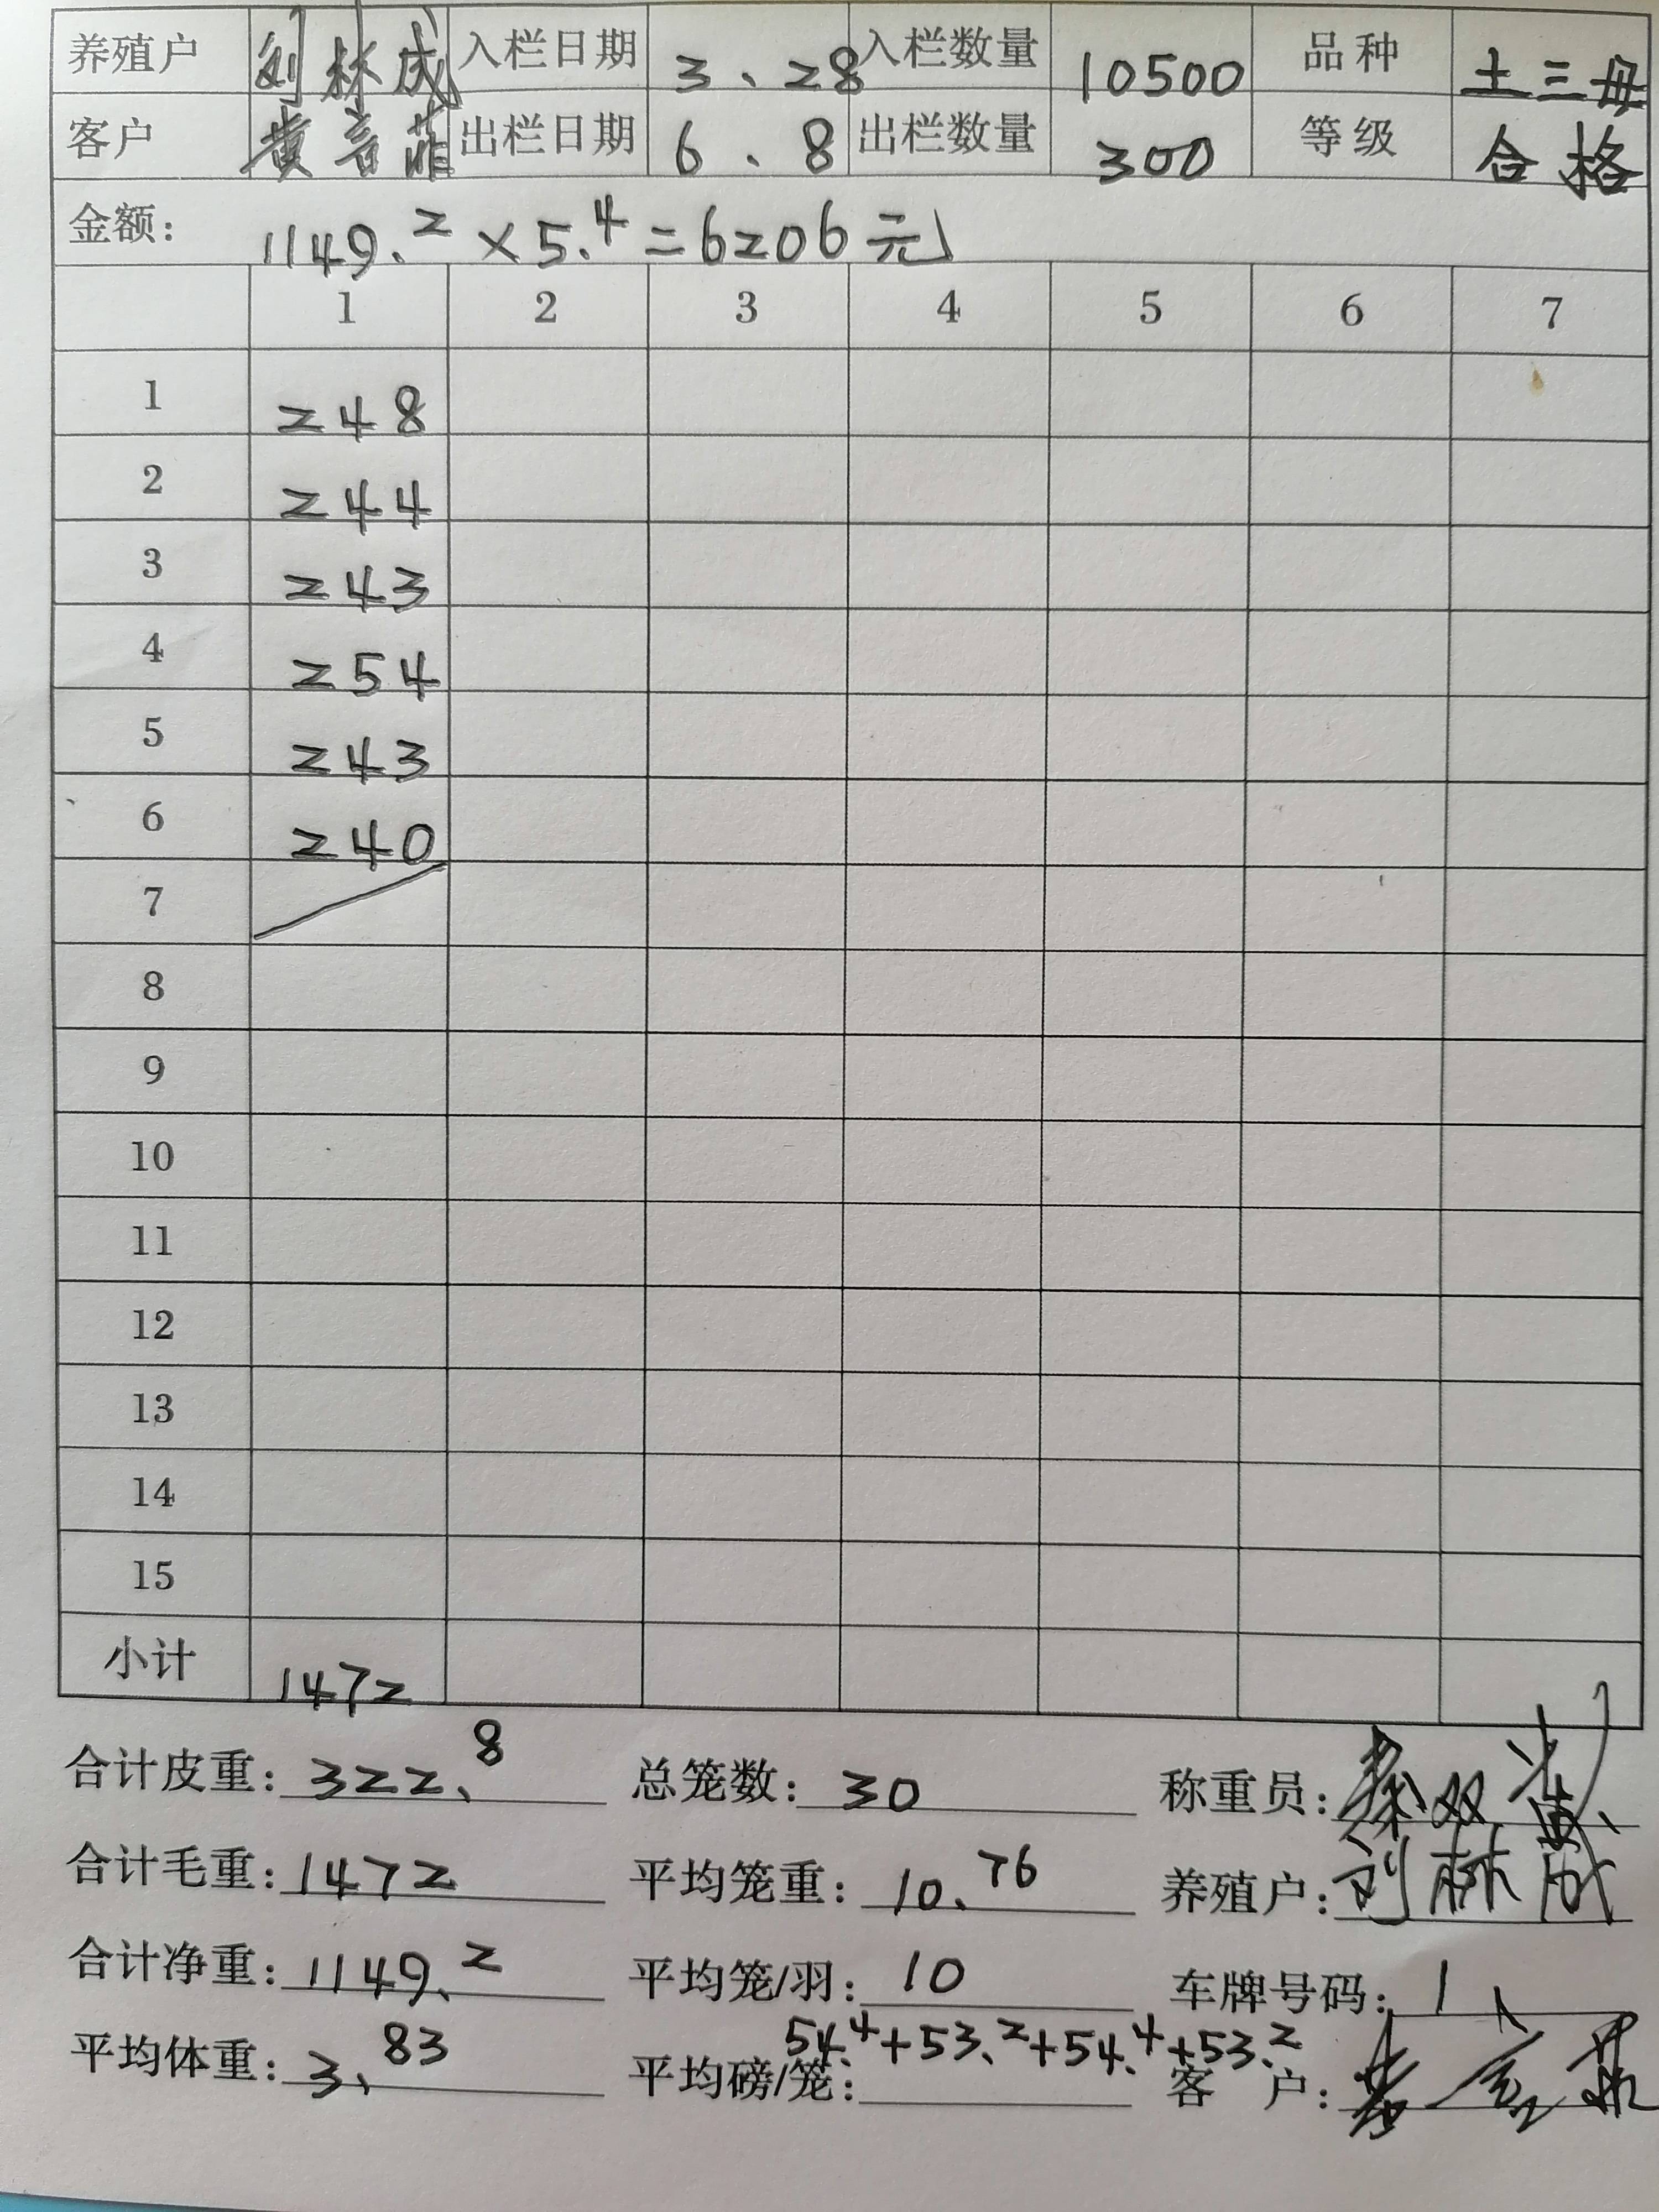 养殖户 刘林成 入栏日期 3、28 入栏数量 10500 品种 土三母
客户 黄言菲 出栏日期 6、8 出栏数量 300 等级 合格
金额: 1149.2×5.4=6206元
1 2 3 4 5 6 7
1 248
2 244
3 243
4 254
5 243
6 240
7
8
9
10
11
12
13
14
15
小计 1472
合计皮重: 322.8 总笼数: 30 称重员: 秦双
合计毛重: 1472 平均笼重: 10.76 养殖户: 刘林成
合计净重: 1149.2 平均笼/羽: 10 车牌号码: 1
54.4+53.2+54.4+53.2
平均体重: 3.83 平均磅/笼: 客户: